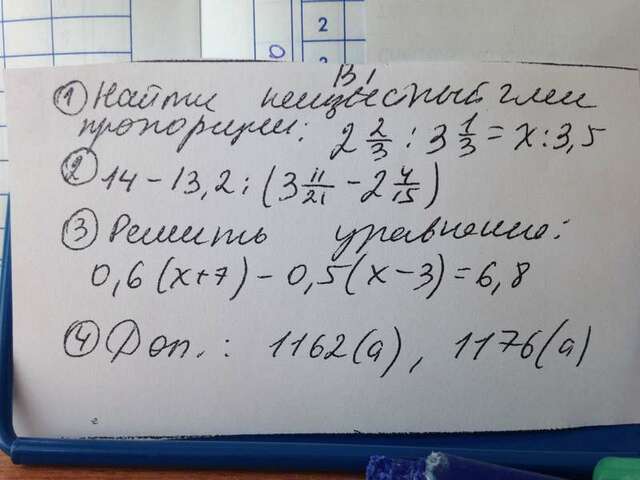 2
0
2
В1
① Найти неизвестный член
пропорции: 2 2/3 : 3 1/3 = x : 3,5
② 14 - 13,2 : (3 11/21 - 2 4/15)
③ Решить уравнение:
0,6(x+7) - 0,5(x-3) = 6,8
④ Доп.: 1162(а), 1176(а)